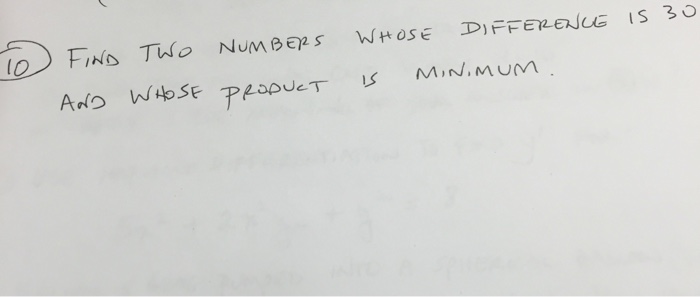 10 FIND TWO NUMBERS WHOSE DIFFERENCE IS 30
AND WHOSE PRODUCT IS MINIMUM.